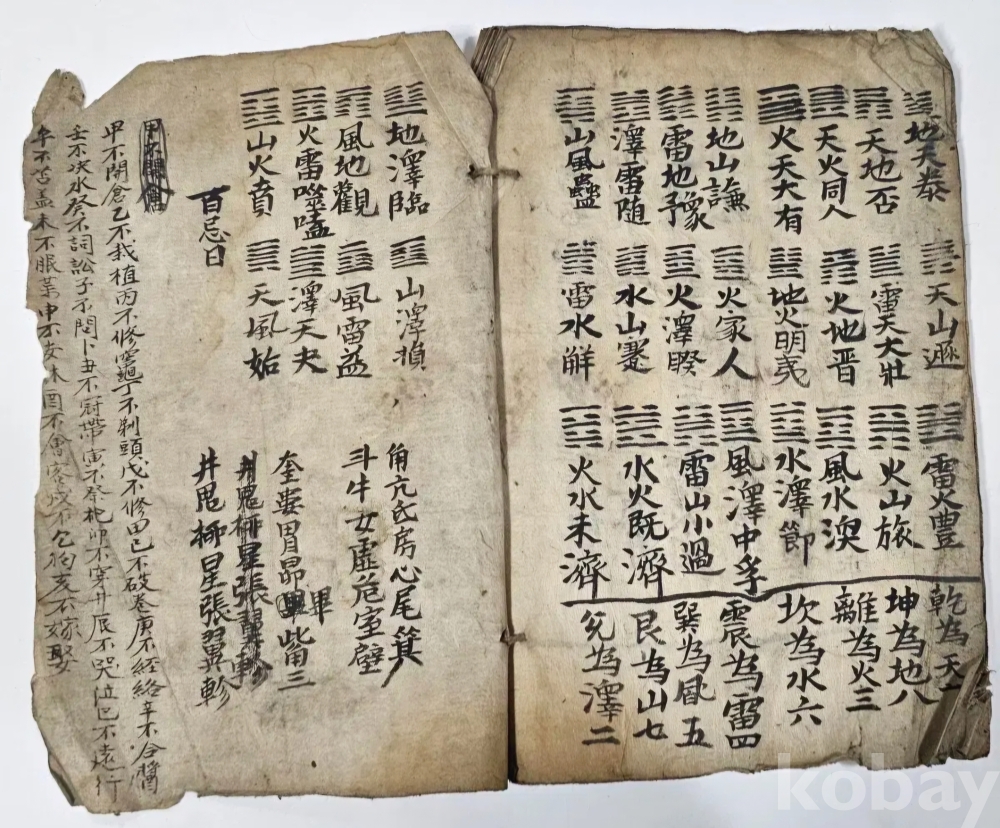 地天泰
天地否
天火同人
火天大有
地山謙
雷地豫
澤雷随
山風蠱
天山遯
雷天大壯
火地晋
地火明夷
火家人
火澤睽
水山蹇
雷水解
雷火豊
火山旅
風水渙
水澤節
風澤中孚
雷山小過
水火既濟
火水未濟
乾為天一
坤為地八
離為火三
坎為水六
震為雷四
巽為風五
艮為山七
兌為澤二
地澤臨
風地觀
火雷噬嗑
山火賁
山澤損
風雷益
澤天夬
天風始
角亢氐房心尾箕
斗牛女虛危室壁
奎婁胃昴畢觜三
井鬼柳星張翼軫
井鬼柳星張翼軫
百忌日
甲不開倉
甲不開倉乙不栽植丙不修竈丁不剃頭戊不修田己不破卷庚不経絡辛不合醬
壬不决水癸不詞訟子不問卜丑不冠帶寅不祭祀卯不穿井辰不哭泣巳不遠行
午不苫盖未不服薬申不安床酉不會客戌不乞狗亥不嫁娶
kobay